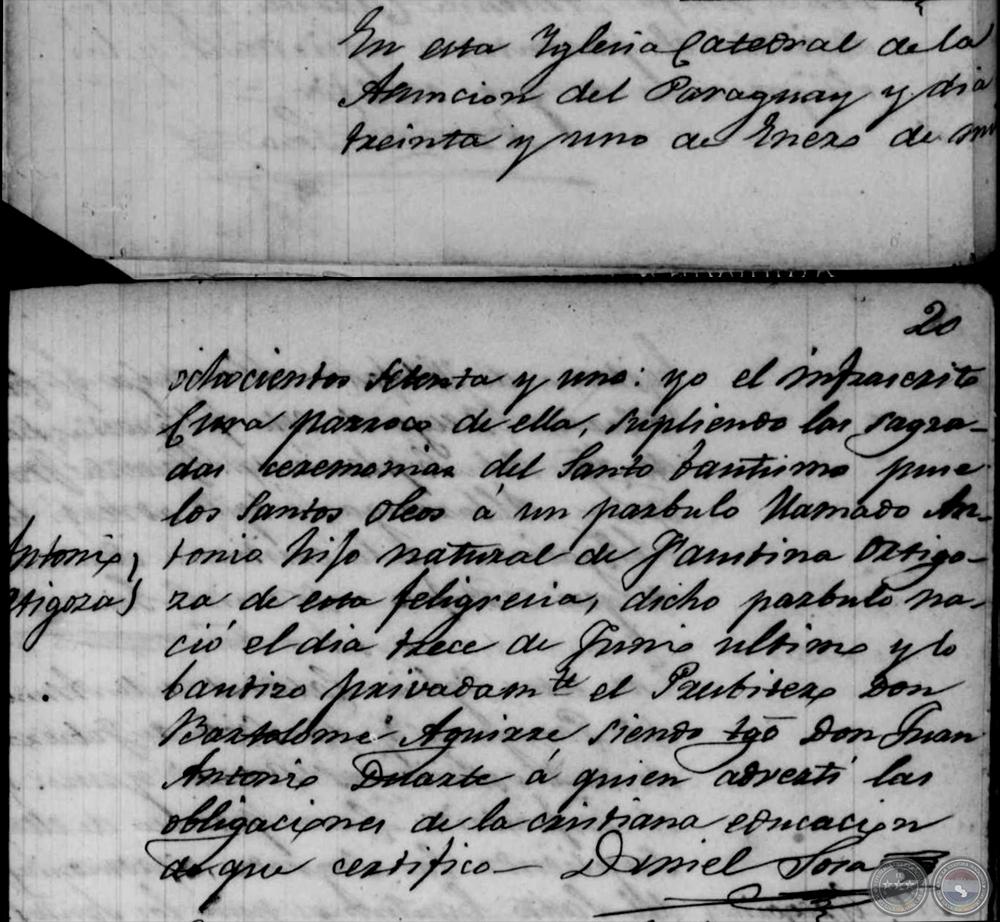 En esta Yglesia Catedral de la
Asuncion del Paraguay y dia
treinta y uno de Enero de mil
20
ochocientos setenta y uno: yo el infrascrito
Cura parroco de ella, supliendo las sagra-
das ceremonias del Santo bautismo puse
los Santos oleos á un parbulo llamado An-
tonio hijo natural de Faustina Ortigo-
za de esta feligrecia, dicho parbulo na-
ció el dia trece de Junio ultimo y lo
bautizo privadamte el Presbitero Don
Bartolomé Aguirre siendo tgo Don Juan
Antonio Duarte á quien advertí las
obligaciones de la cristiana educacion
de que certifico – Daniel Sosa
Antonio
Ortigoza